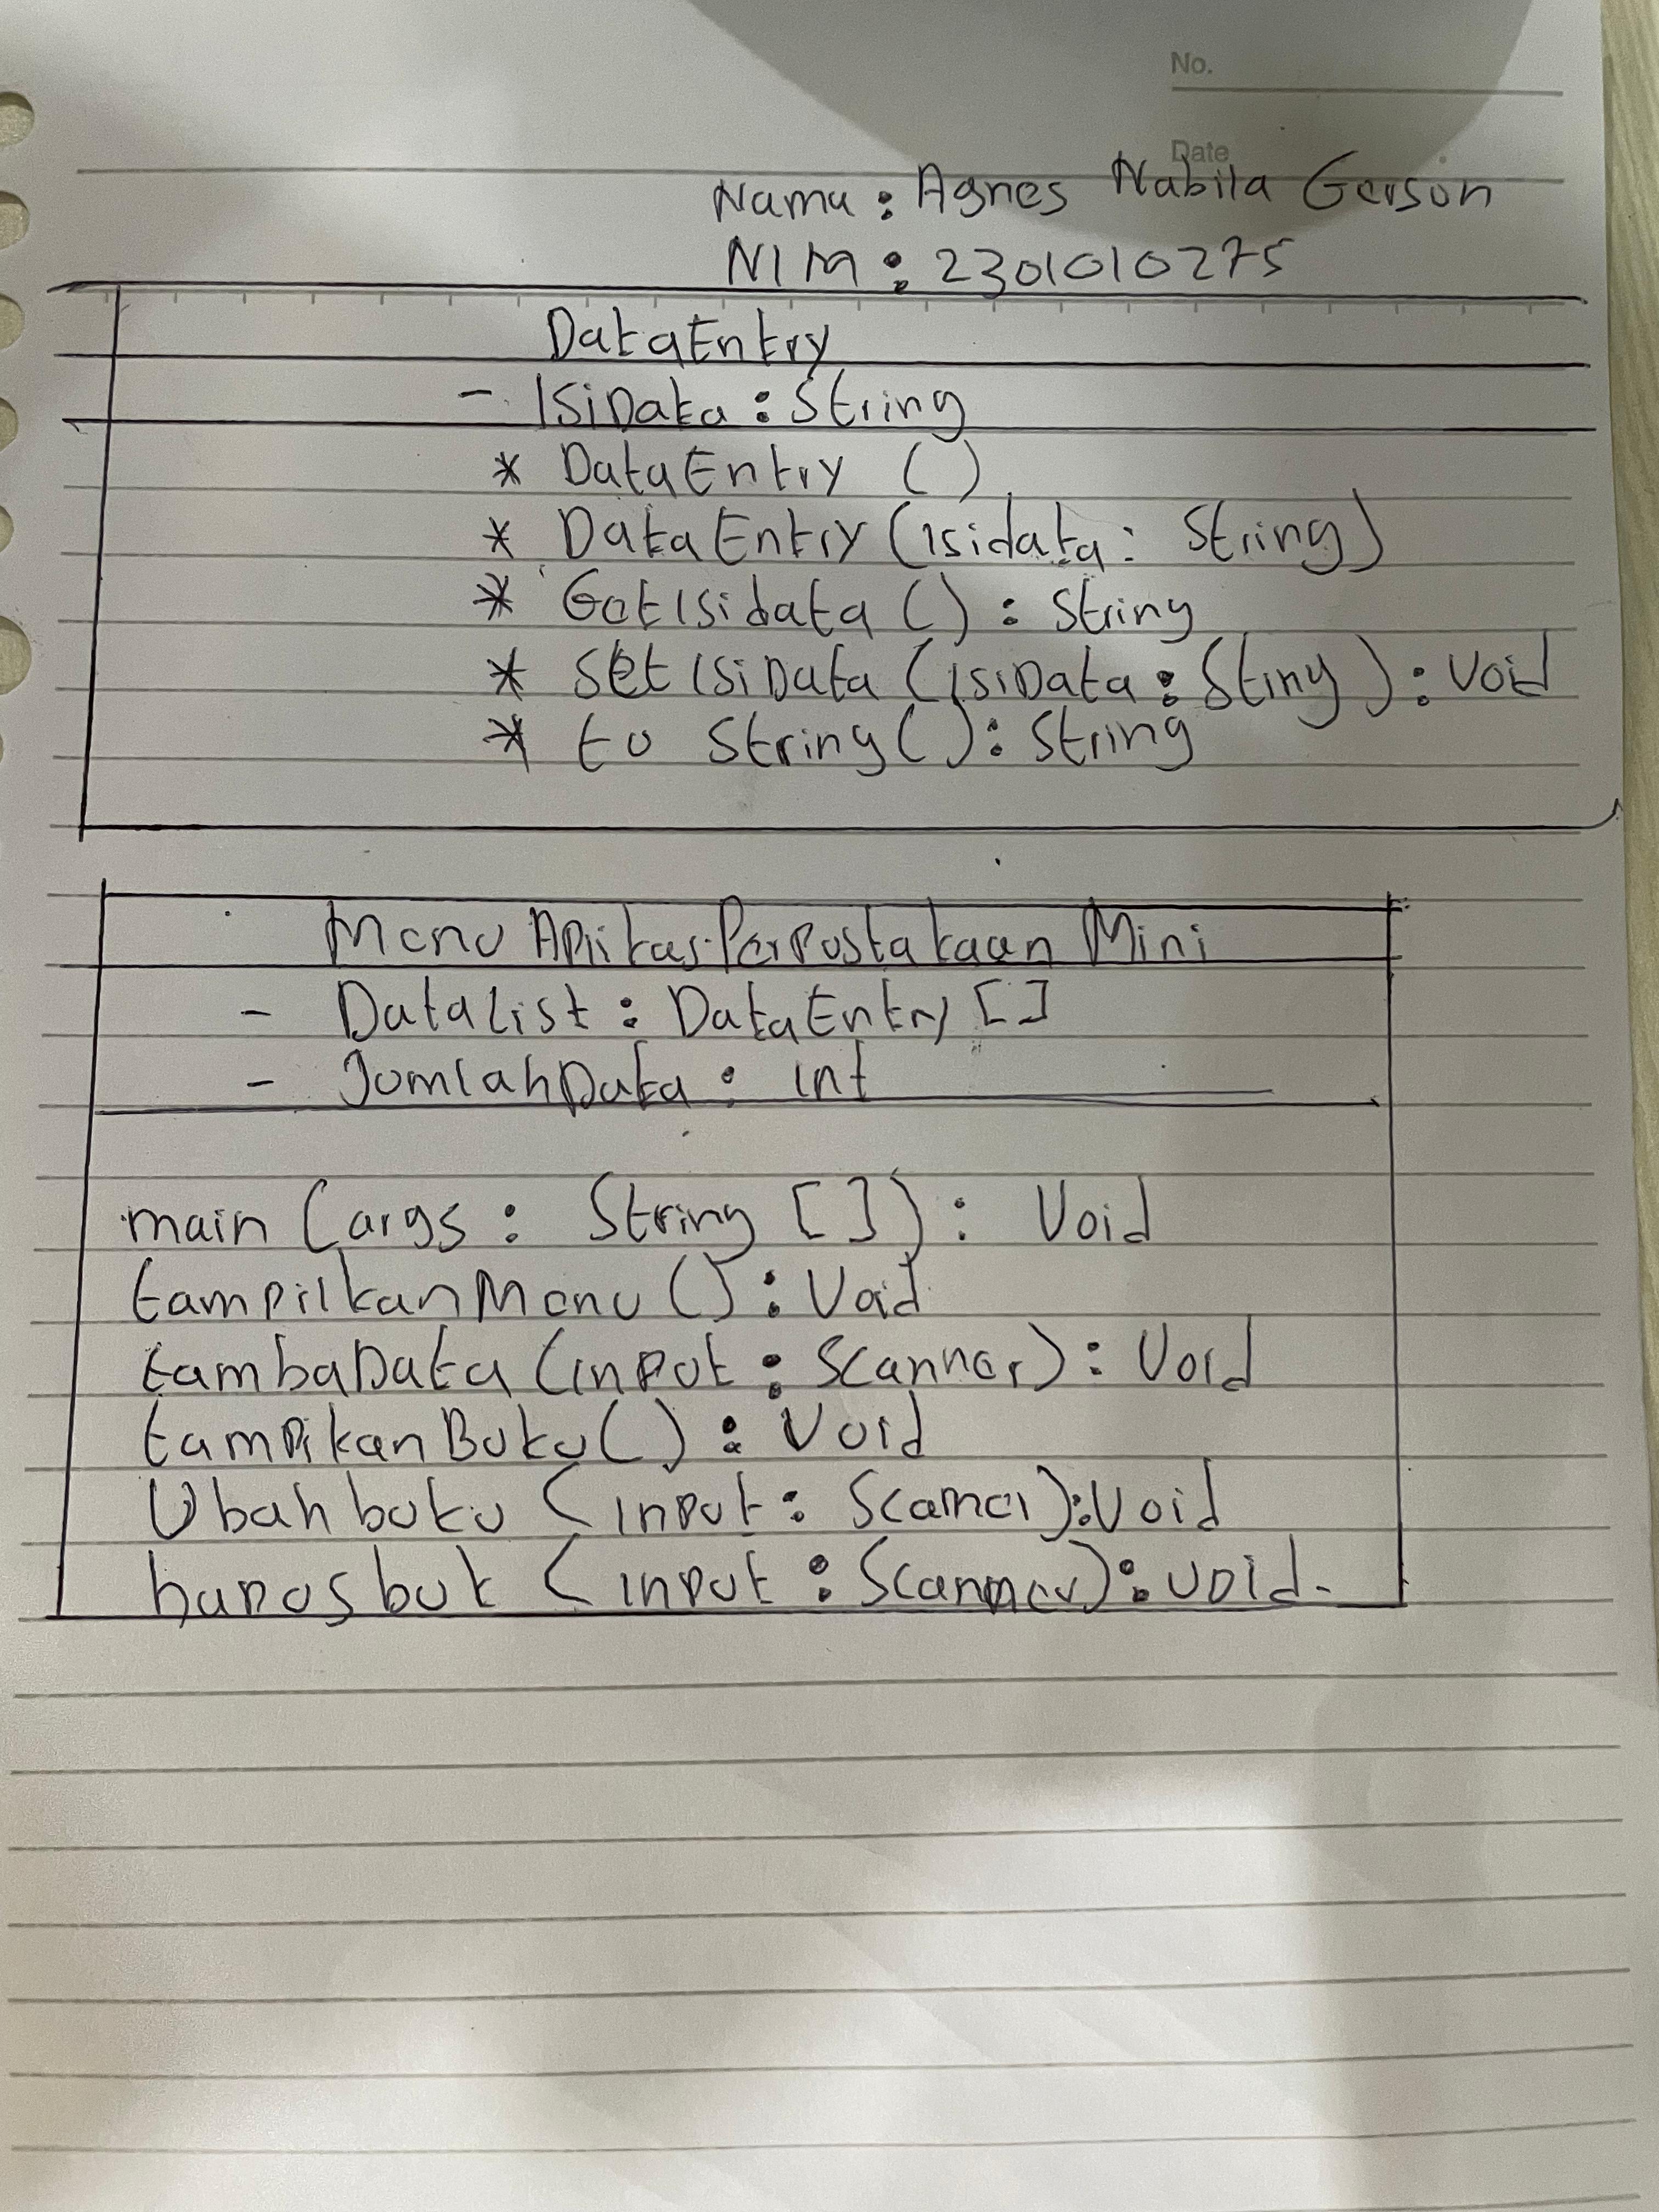 No.
Date
Nama : Agnes Nabila Gerson
NIM : 2301010275
DataEntry
- IsiData : String
* DataEntry ()
* DataEntry (isidata : String)
* GetIsidata () : String
* SetIsiData (IsiData : Stiny) : Void
* to String() : String
Menu Aplikasi Perpustakaan Mini
- DataList : DataEntry []
- JumlahData : int
main (args : String []) : Void
tampilkanMenu () : Void
tambaData (input : Scanner) : Void
tampikanBuku() : Void
Ubahbuku (input : Scaner) : Void
hapusbuk (input : Scanner) : void.